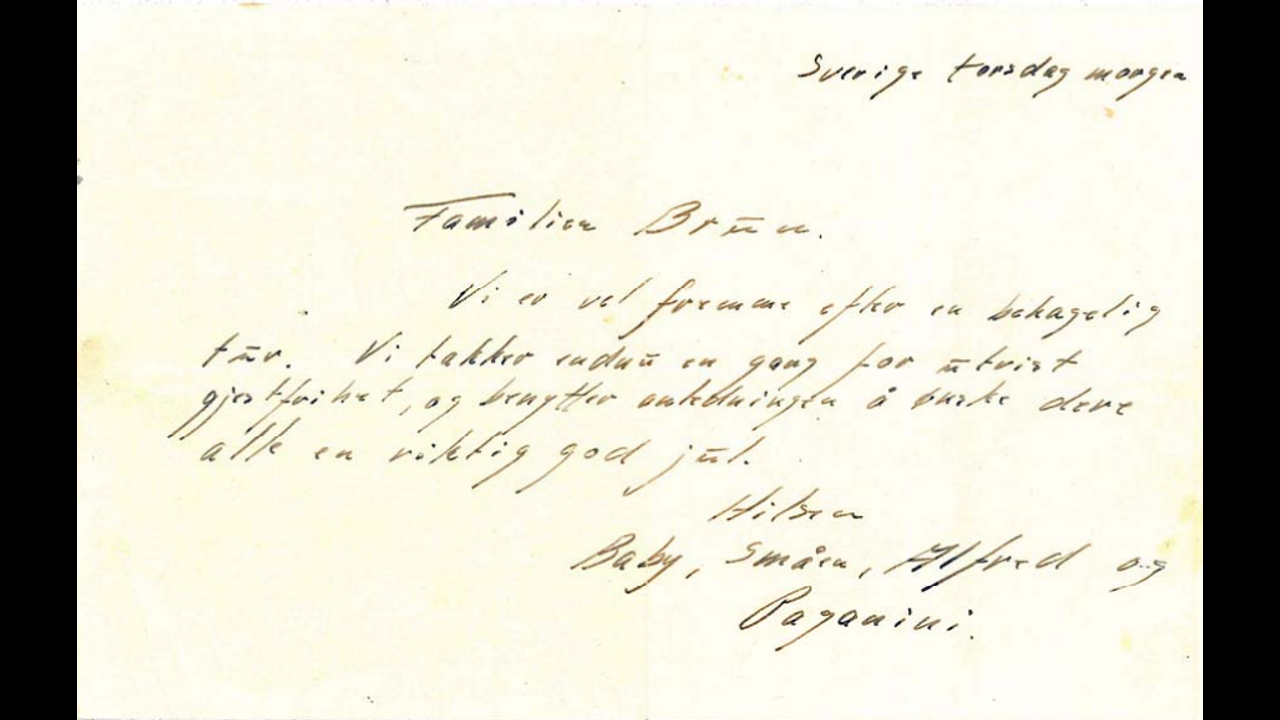 Sverige torsdag morgen
Familien Brūn.
Vi er vel fremme efter en behagelig
tūr. Vi takker endnū en gang for ūtvist
gjestfrihet, og benytter anledningen å ønske dere
alle en riktig god jūl.
Hilsen
Baby, Småen, Alfred og
Paganini.